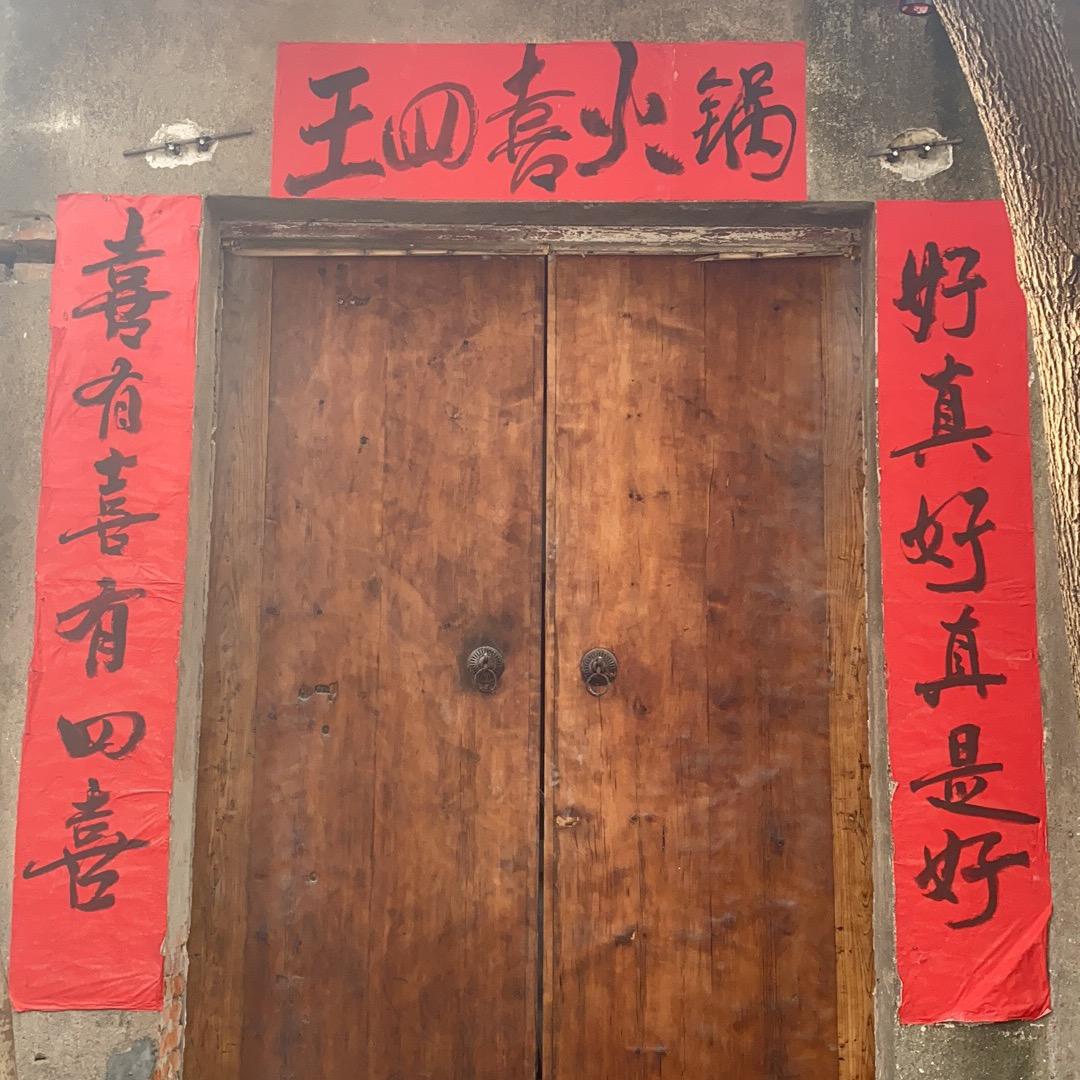 王四喜火锅
好真好真是好
喜有喜有四喜